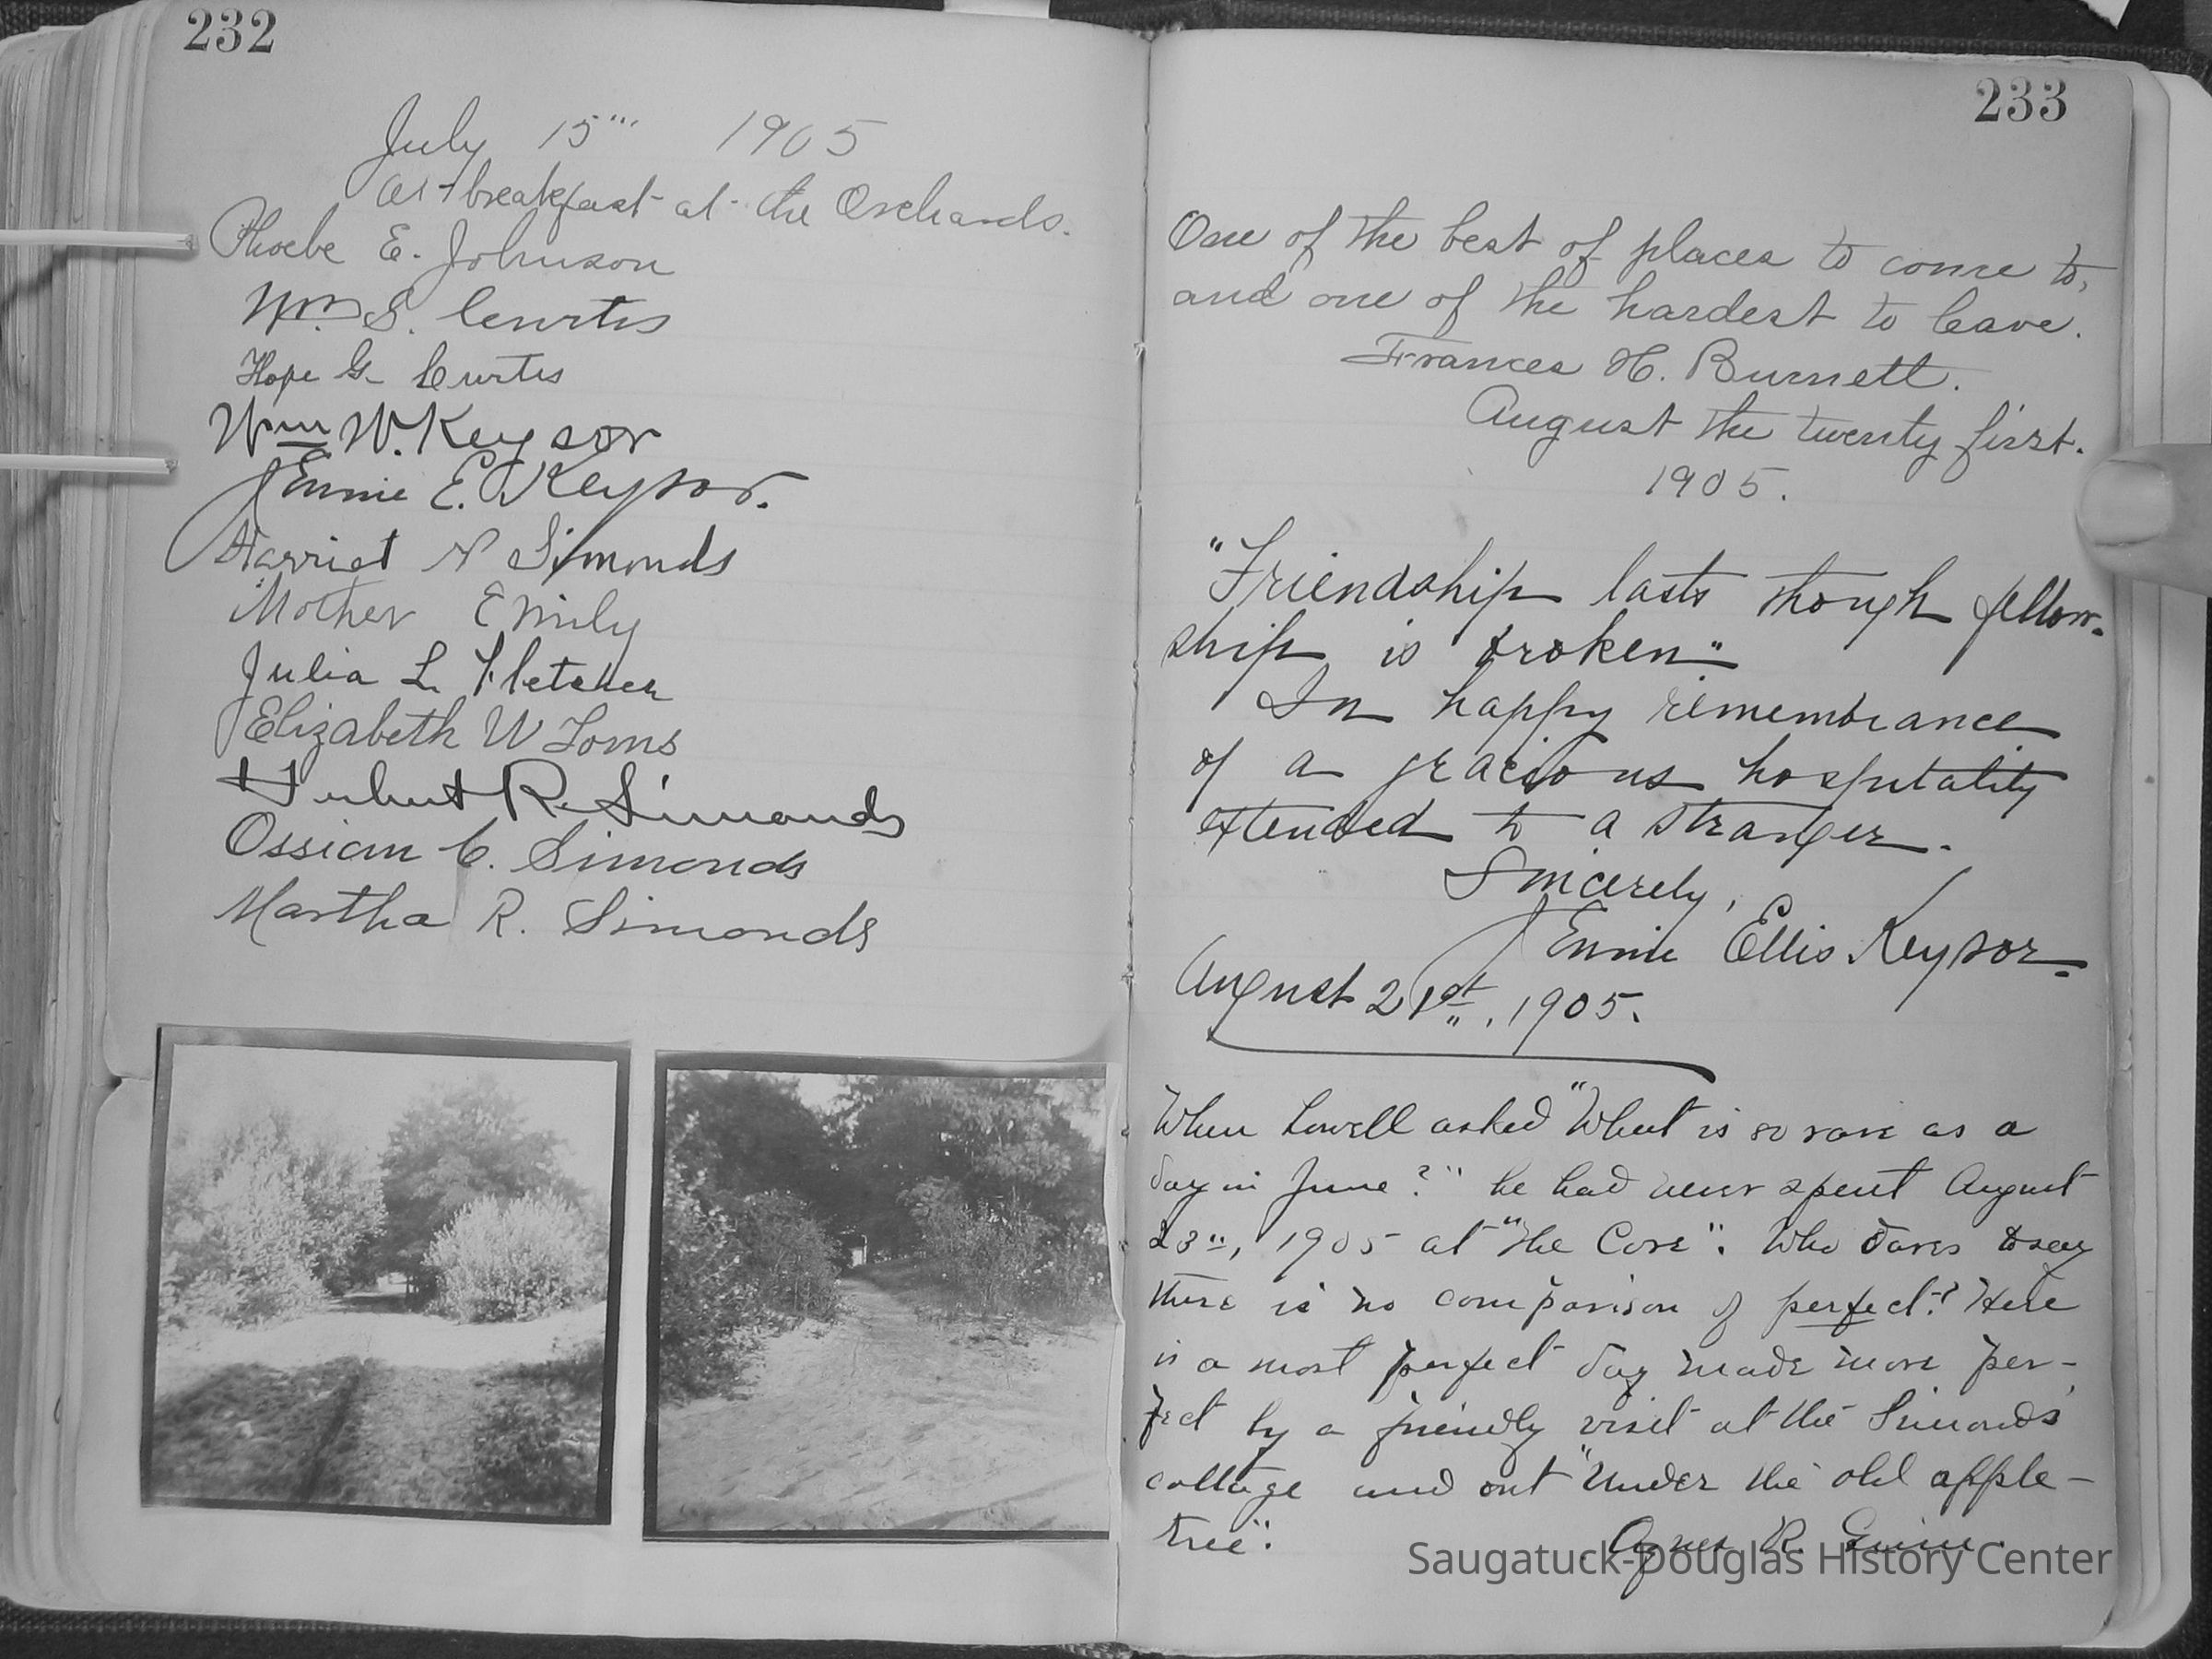 232
July 15''' 1905
At breakfast at the Orchards.
Phoebe E. Johnson
Wm. S. Curtis
Hope G. Curtis
Wm W. Keysor
Jennie E. Keysor.
Harriet N Simonds
Mother Emily
Julia L. Fletcher
Elizabeth W Loms
Hubert R. Simonds
Ossian C. Simonds
Martha R. Simonds
233
One of the best of places to come to,
and one of the hardest to leave.
Frances H. Burnett.
August the twenty first.
1905.
"Friendship lasts though fellow-
ship is broken."
In happy remembrance
of a gracious hospitality
extended to a stranger.
Sincerely,
Jennie Ellis Keysor.
August 21st, 1905.
When Lowell asked "What is so rare as a
day in June?" he had never spent August
23", 1905 at "The Cove". Who dares to say
there is no comparison of perfect? Here
is a most perfect day made more per-
fect by a friendly visit at the Simonds'
cottage and out "under the old apple-
tree".
Agnes R.
Saugatuck-Douglas History Center